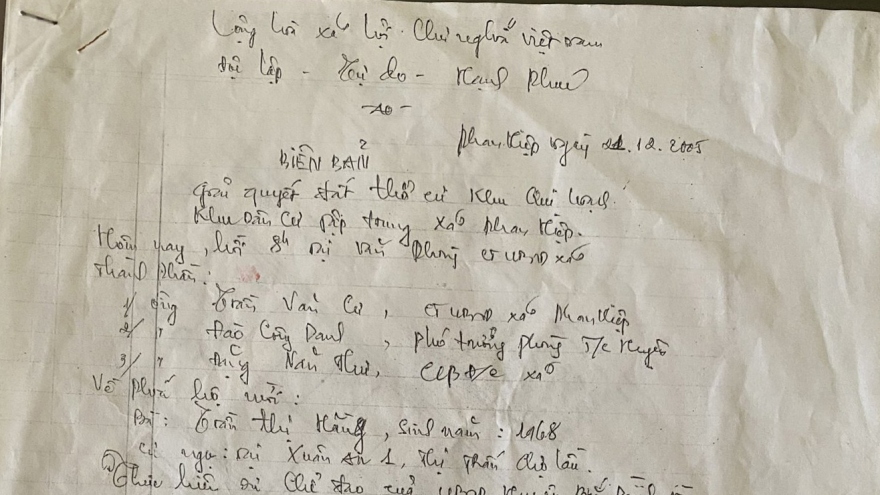 Cộng hòa xã hội Chủ nghĩa Việt Nam
Độc lập - Tự do - Hạnh Phúc
Phan Hiệp ngày 21.12.2005
BIÊN BẢN
Giải quyết đất thổ cư Khu Qui hoạch
Khu Dân Cư tập trung xã Phan Hiệp.
Hôm nay, hồi 8h tại văn phòng UBND xã
Thành phần:
1/ Ông Trần Văn Cư, CT UBND xã Phan Hiệp
2/ " Đào Công Danh, phó trưởng phòng T/c huyện
3/ " Đặng Năn Thư, CB Đ/c xã
Về phía hộ mới:
Bà: Trần Thị Hằng, Sinh năm: 1968
Cư ngụ: tại Xuân An 1, Thị Trấn Chợ Lầu.
Thực hiện sự Chỉ đạo của UBND huyện